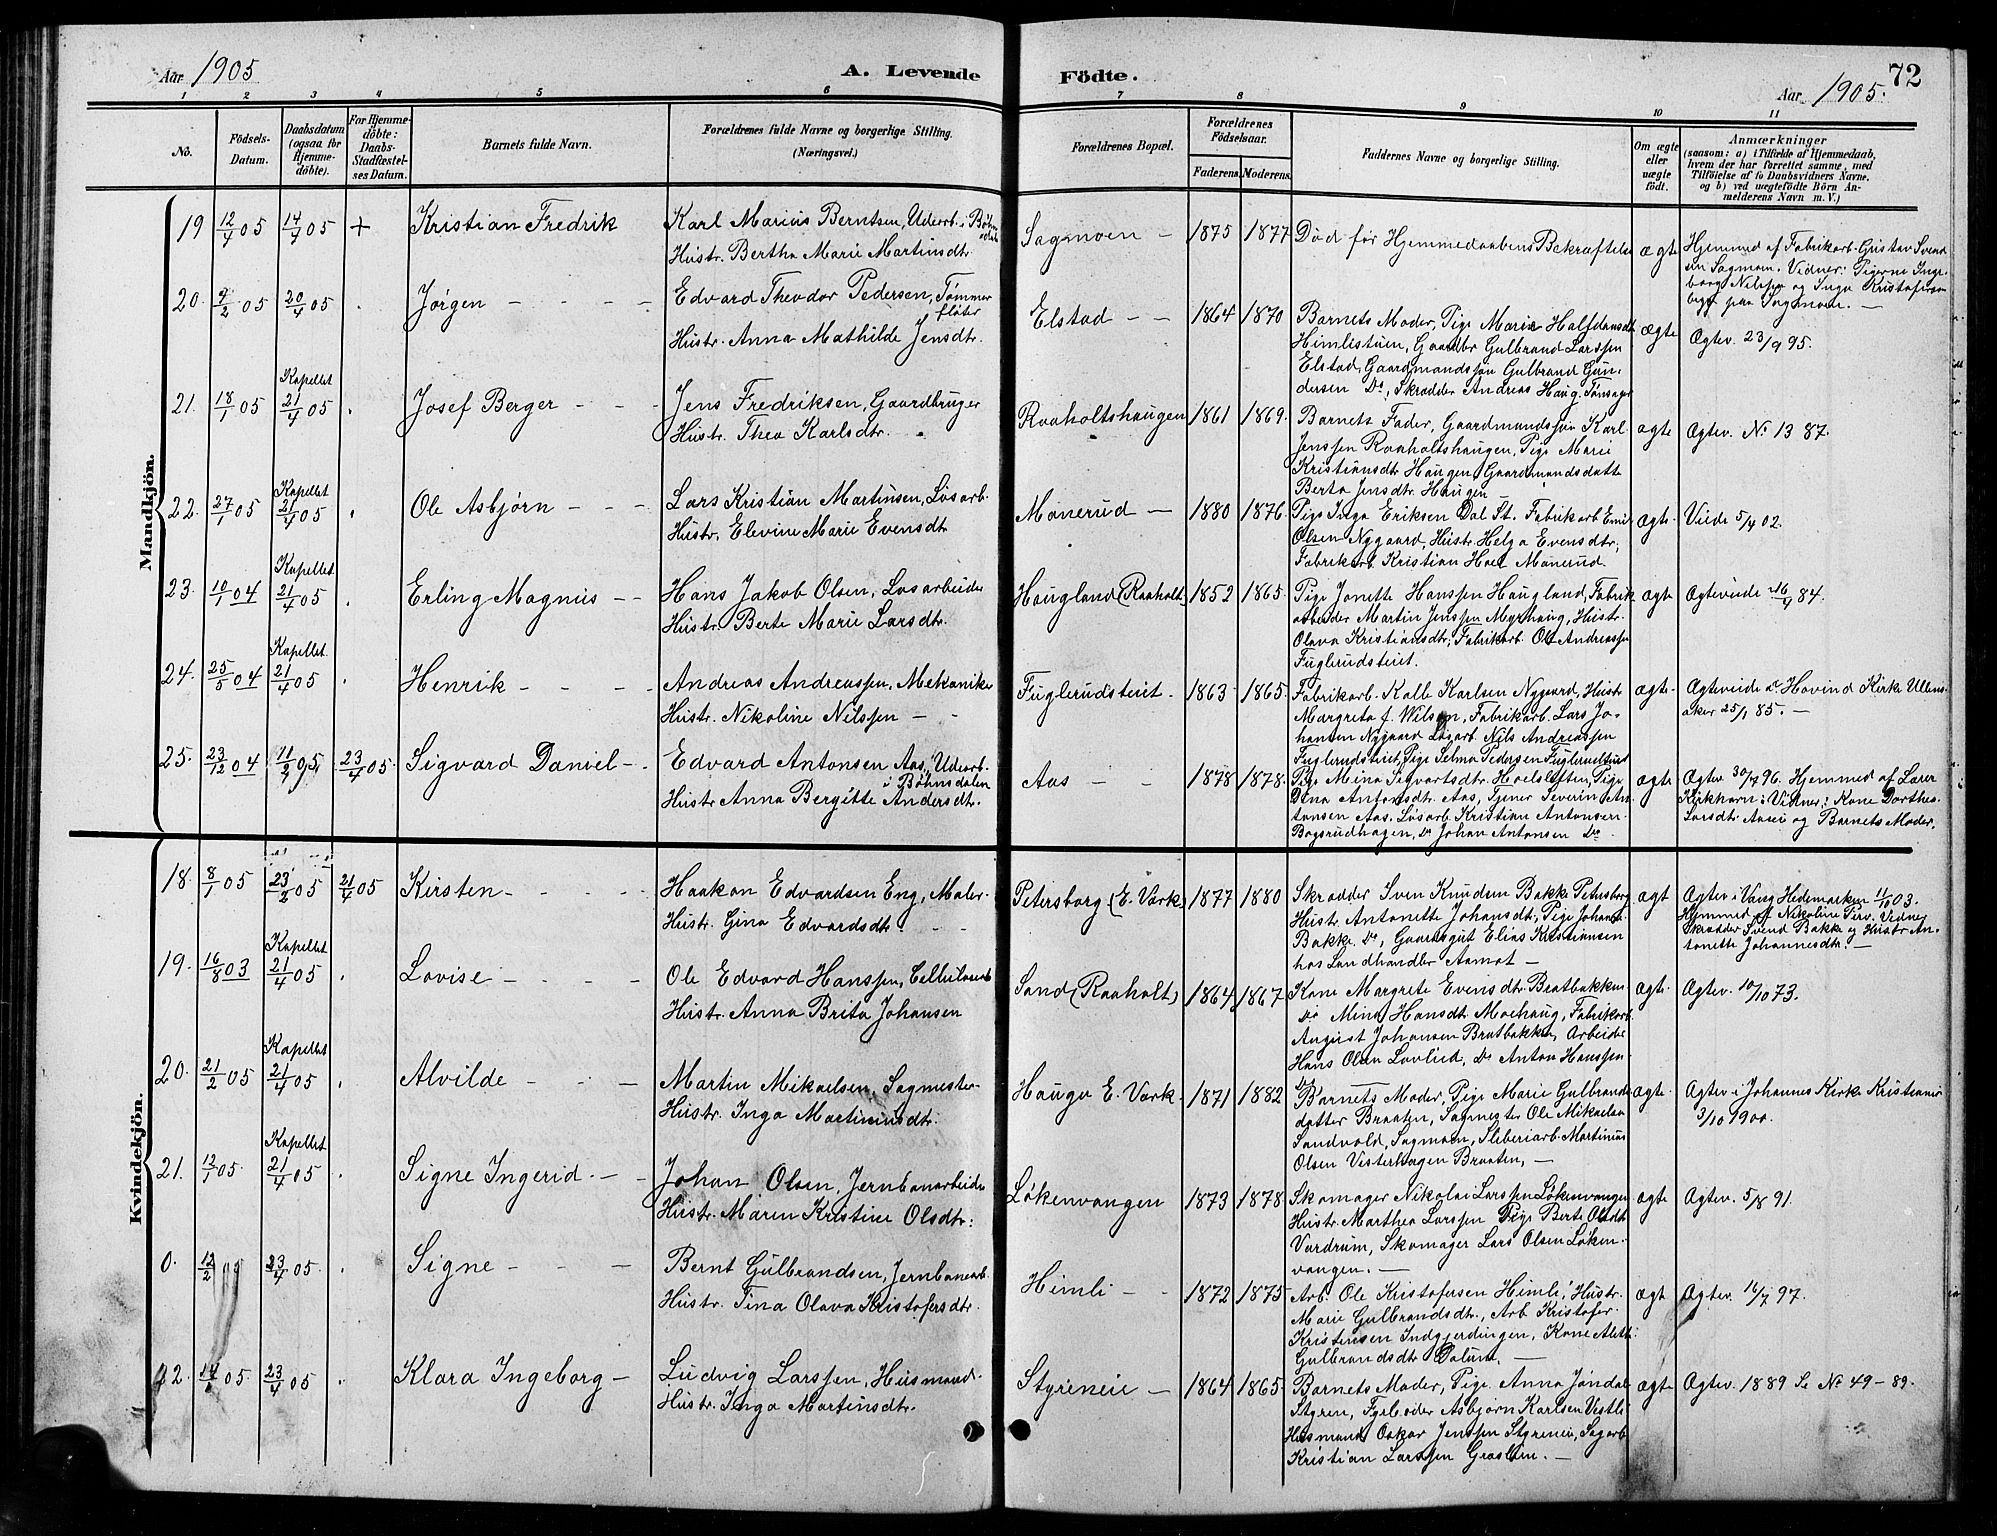 Aar 1905
A. Levende
Födte.
Aar 1905.
72
1 2 3 4 5 6 7 8 9 10 11
No.
Födsels-
Datum.
Daabsdatum
(ogsaa for
Hjemme-
döbte).
For Hjemme-
döbte:
Daabs-
Stadfæstel-
ses Datum.
Barnets fulde Navn.
Forældrenes fulde Navne og borgerlige Stilling.
(Næringsvei.)
Forældrenes Bopæl.
Forældrenes
Födselsaar.
Faderens. Moderens.
Faddernes Navne og borgerlige Stilling.
Om ægte
eller
uægte
født.
Anmærkninger
(saasom: a) i Tilfælde af Hjemmedaab,
hvem der har forrettet samme, med
Tilföielse af to Daabsvidners Navne.
og b) ved uægtefödte Börn An-
melderens Navn m. V.)
Mandkjön.
19 12/4 05 14/4 05 + Kristian Fredrik
Karl Marius Berntsen, Udearb. i Bøhns
dalen
Hustr. Bertha Marie Martinsdtr
Sagmoen – 1875 1877 Død før Hjemmedaabens Bekræftelse ægte
Hjemmed af Fabrikarb. Gustav Svend
sen Sagmoen. Vidner: Pigerne Inge-
borg Nilsen og Inga Kristofersen
begge paa Sagmoen. –
20. 9/2 05 20/4 05 Jørgen – – –
Edvard Theodor Pedersen, Tømmer
fløter
Hustr. Anna Mathilde Jensdtr.
Elstad – – 1864 1870
Barnets Moder, Pige Marie Halfdansdtr
Himlistuen, Gaardbr Gulbrand Larssen
Elstad, Gaardmandssøn Gulbrand Gun-
dersen Do, Skrædder Andreas Haug, Tønsager
ægte
Ægtev. 23/9 95.
21. 18/1 05 Kapellet 21/4 05 Josef Berger – – –
Jens Fredriksen, Gaardbruger
Hustr. Thea Karlsdtr.
Raaholtshaugen 1861 1869.
Barnets Fader, Gaardmandssøn Karl
Jenssen Raaholtshaugen, Pige Marie
Kristiansdtr Haugen, Gaardmandsdatte
Berta Jensdtr. Haugen –
ægte Ægtev. No 13 87.
22. 27/1 05 Kapellet 21/4 05 Ole Asbjørn – – –
Lars Kristian Martinsen, Løsarb.
Hustr. Elevine Marie Evensdtr
Monerud – 1880 1876
Pige Inga Eriksen Dal St. Fabrikarb Emil
Olsen Nygaard, Hustr. Helga Evensdtr,
Fabrikarb. Kristian Hoel Monerud.
ægte Viede 5/4 02.
23. 10/1 04 Kapellet 21/4 05 Erling Magnus – –
Hans Jakob Olsen, Løsarbeider
Hustr. Berte Marie Larsdtr.
Haugland (Raaholt) 1852 1865
Pige Jonette Hanssen Haugland, Fabrik
arbeider Martin Jenssen Myrhaug, Hustr.
Olava Kristiansdtr, Fabrikarb. Ole Andreassen
Fuglerudsteiet.
ægte Ægteviede 16/4 84.
24. 25/5 04 Kapellet 21/4 05 Henrik – – –
Andreas Andreassen, Mekaniker
Hustr. Nikoline Nilssen – –
Fuglerudsteiet – 1863 1865
Fabrikarb. Kalle Karlsen Nygaard, Hustr
Margreta f. Wilson, Fabrikarb. Lars Jo-
hansen Nygaard Løsarb. Nils Andreassen
Fuglerudsteiet, Pige Selma Pedersen Fuglerudsteiet
ægte
Ægteviede i Hovind Kirke Ullens-
aker 25/1 85. –
25. 23/12 04 11/2 05 23/4 05 Sigvard Daniel –
Edvard Antonsen Aas, Udearb.
i Bøhnsdalen
Hustr Anna Bergitte Andersdtr.
Aas – – 1878 1878
Pige Mina Sigvartsdtr. Hoelsløften, Pige
Dina Antonsdtr. Aas, Tjener Severin An-
tonsen Aas. Løsarb Kristian Antonsen
Bøgsrudhagen, Do Johan Antonsen Do
ægte
Ægtev 30/7 96. Hjemmed af Lærer
Kirkhorn: Vidner: Kone Dorthea
Larsdtr. Aasei og Barnets Moder.
Kvindekjön.
18. 8/1 05 23/2 05 21/4 05 Kirsten – – – –
Haakon Edvardsen Eng, Maler
Hustr. Gina Edvardsdtr. – –
Petersborg (E. Værk) 1877 1880
Skrædder Sven Knudsen Bakke Petersborg
Hustr Antonette Johansdtr, Pige Johanne
Bakke Do, Gaardsgut Elias Kristiansen
hos Landhandler Aamot –
ægt
Ægtev i Vang Hedemarken 11/10 03.
Hjemmed af Nikoline Perv. Vidner
Skrædder Svend Bakke og Hustr An-
tonette Johannesdtr. –
19. 16/8 03 Kapellet 21/4 05 Lovise – – – –
Ole Edvard Hanssen, Cellulosearb
Hustr. Anna Brita Johansen
Sand (Raaholt) 1864 1867
Kone Margrete Evensdtr Bratbakken
Do Mina Hansdtr Moehaug, Fabrikarb
August Johansen Bratbakken, Arbeider
Hans Olsen Lovlied, Do Anton Hanssen
Do
ægte Ægtev. 10/10 73.
20. 21/2 05 Kapellet 21/4 05 Alvilde – – –
Martin Mikaelsen, Sagmester
Hustr. Inga Martiniusdtr.
Hauga E. Værk. 1871 1882
Barnets Moder, Pige Marie Gulbrands
datter Braaten, Sagmester Ole Mikaelsen
Sandvold, Sagmoen, Sliberiarb. Martinius
Olsen Vesterhagen Braaten, –
ægte
Ægtev. i Johannes Kirke Kristiania
3/10 1900.
21. 12/1 05 Kapellet 21/4 05 Signe Ingerid – –
Johan Olsen, Jernbanarbeider
Hustr. Maren Kristine Olsdtr:
Løkenvangen 1873 1878
Skomager Nikolai Larssen Løkenvangen
Hustr. Marthea Larssen, Pige Berte Olsdtr
Vardrum, Skomager Lars Olsen Løken-
vangen. –
ægte Ægtev. 5/8 91.
0. 12/2 05 23/4 05. Signe – – –
Bernt Gulbrandsen, Jernbanearb.
Hustr. Tina Olava Kristofersdtr.
Himli – – 1872 1875
Arb. Ole Kristofersen Himli, Hustr.
Marie Gulbrandsdtr., Arb Kristofer
Kristensen Indgjerdingen, Kone Alette
Gulbrandsdtr Dolum. –
ægt Ægtev. 16/7 97.
22. 14/1 05 23/4 05 Klara Ingeborg –
Ludvig Larssen, Husmand.
Hustr. Inga Martinsdtr.
Styreneie – 1864 1865
Barnets Moder, Pige Anna Jøndal
Styren, Fyrbøder Asbjørn Karlsen Vestli
Husmand Oskar Jenssen Styreneie, Sagarb
Kristian Larssen Græslien. –
ægte Ægtev. 1889 Se No 49 – 89.